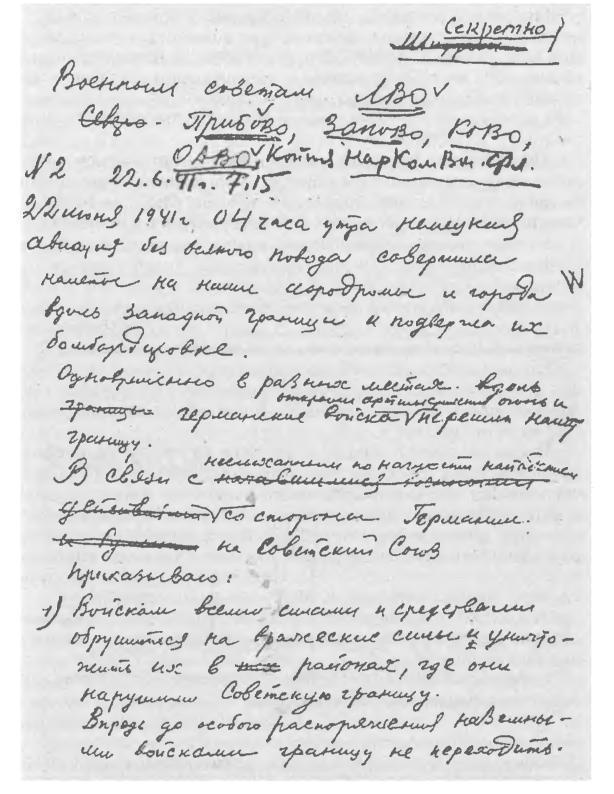 Секретно
Военным советам ЛВО
Прибово, Запово, Ково,
ОдВО, Копия НарКомВм. Фл.
N2 22.6.41г. 7.15
22 июня 1941г. 04 часа утра немецкая
авиация без всякого повода совершила
налеты на наши аэродромы и города
вдоль западной границы и подвергла их
бомбардировке.
Одновременно в разных местах вдоль
открыли артиллерийский огонь и
границы германские войска перешли нашу
границу.
неслыханным по наглости нападением
В связи с
действиями со стороны Германии
на Советский Союз
Приказываю:
1) Войскам всеми силами и средствами
обрушиться на вражеские силы и уничто-
жить их в тех районах, где они
нарушили Советскую границу.
Впредь до особого распоряжения наземны-
ми войсками границу не переходить.